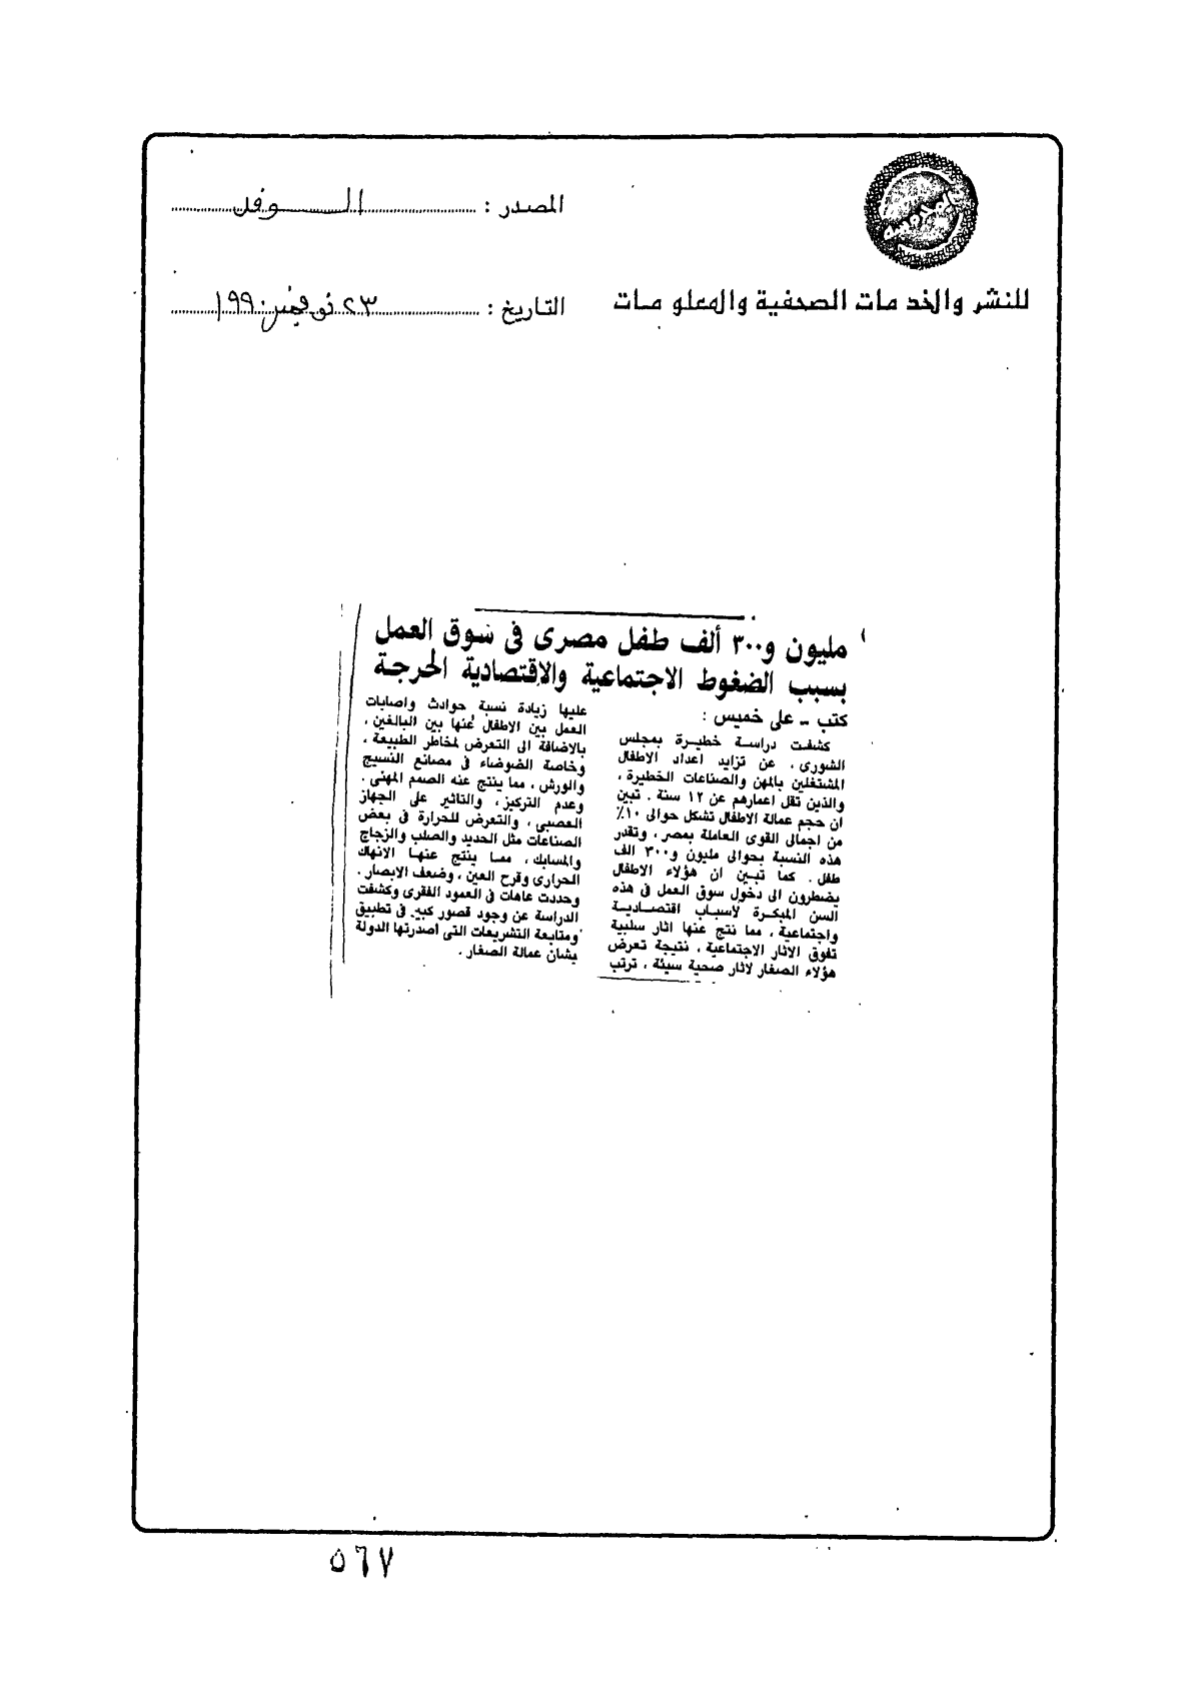 المدرسة
للنشر والخدمات الصحفية والمعلومات
المصدر : الوفد
التاريخ : ٢٣ نوفمبر ١٩٩٠
مليون و٣٠٠ ألف طفل مصرى فى سوق العمل
بسبب الضغوط الاجتماعية والاقتصادية الحرجة
كتب ــ على خميس :
كشفت دراسة خطيرة بمجلس
الشورى ، عن تزايد اعداد الاطفال
المشتغلين بالمهن والصناعات الخطيرة ،
والذين تقل اعمارهم عن ١٢ سنة . تبين
ان حجم عمالة الاطفال تشكل حوالى ١٠٪
من اجمالى القوى العاملة بمصر ، وتقدر
هذه النسبة بحوالى مليون و٣٠٠ الف
طفل . كما تبين ان هؤلاء الاطفال
يضطرون الى دخول سوق العمل فى هذه
السن المبكرة لأسباب اقتصادية
واجتماعية ، مما نتج عنها اثار سلبية
تفوق الاثار الاجتماعية ، نتيجة تعرض
هؤلاء الصغار لاثار صحية سيئة ، ترتب
عليها زيادة نسبة حوادث واصابات
العمل بين الاطفال عنها بين البالغين ،
بالاضافة الى التعرض لمخاطر الطبيعة ،
وخاصة الضوضاء فى مصانع النسيج
والورش ، مما ينتج عنه الصمم المهنى .
وعدم التركيز ، والتاثير على الجهاز
العصبى ، والتعرض للحرارة فى بعض
الصناعات مثل الحديد والصلب والزجاج
والمسابك ، مما ينتج عنها الانهاك
الحرارى وقرح العين ، وضعف الابصار .
وحددت عاهات فى العمود الفقرى وكشفت
الدراسة عن وجود قصور كبير فى تطبيق
ومتابعة التشريعات التى اصدرتها الدولة
بشان عمالة الصغار .
٥٦٧